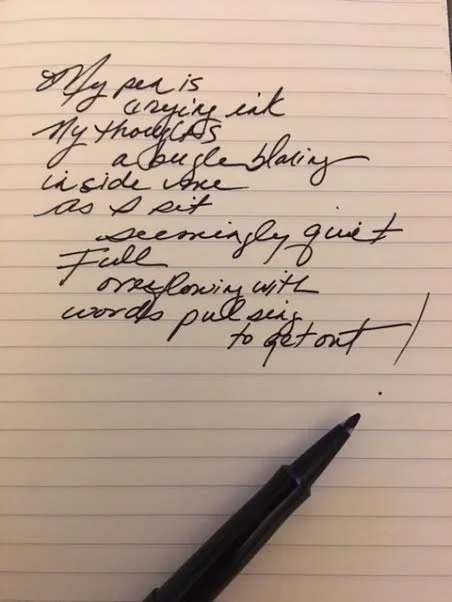 My pen is
crying ink
My thoughts
a bugle blaring
inside me
as I sit
seemingly quiet
Full
overflowing with
words pulsing
to get out!